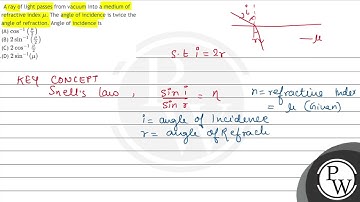 A ray of light passes from vacuum into a medium of
refractive index μ. The angle of incidence is twice the
angle of refraction. Angle of incidence is
(A) cos⁻¹ (μ/2)
(B) 2 sin⁻¹ (μ/2)
(C) 2 cos⁻¹ μ/2
(D) 2 sin⁻¹ (μ)
i
r
μ
s.t i = 2r
KEY CONCEPT
Snell's law, sin i / sin r = n
n = refractive Index
= μ (Given)
i = angle of Incidence
r = angle of Refracti
PW